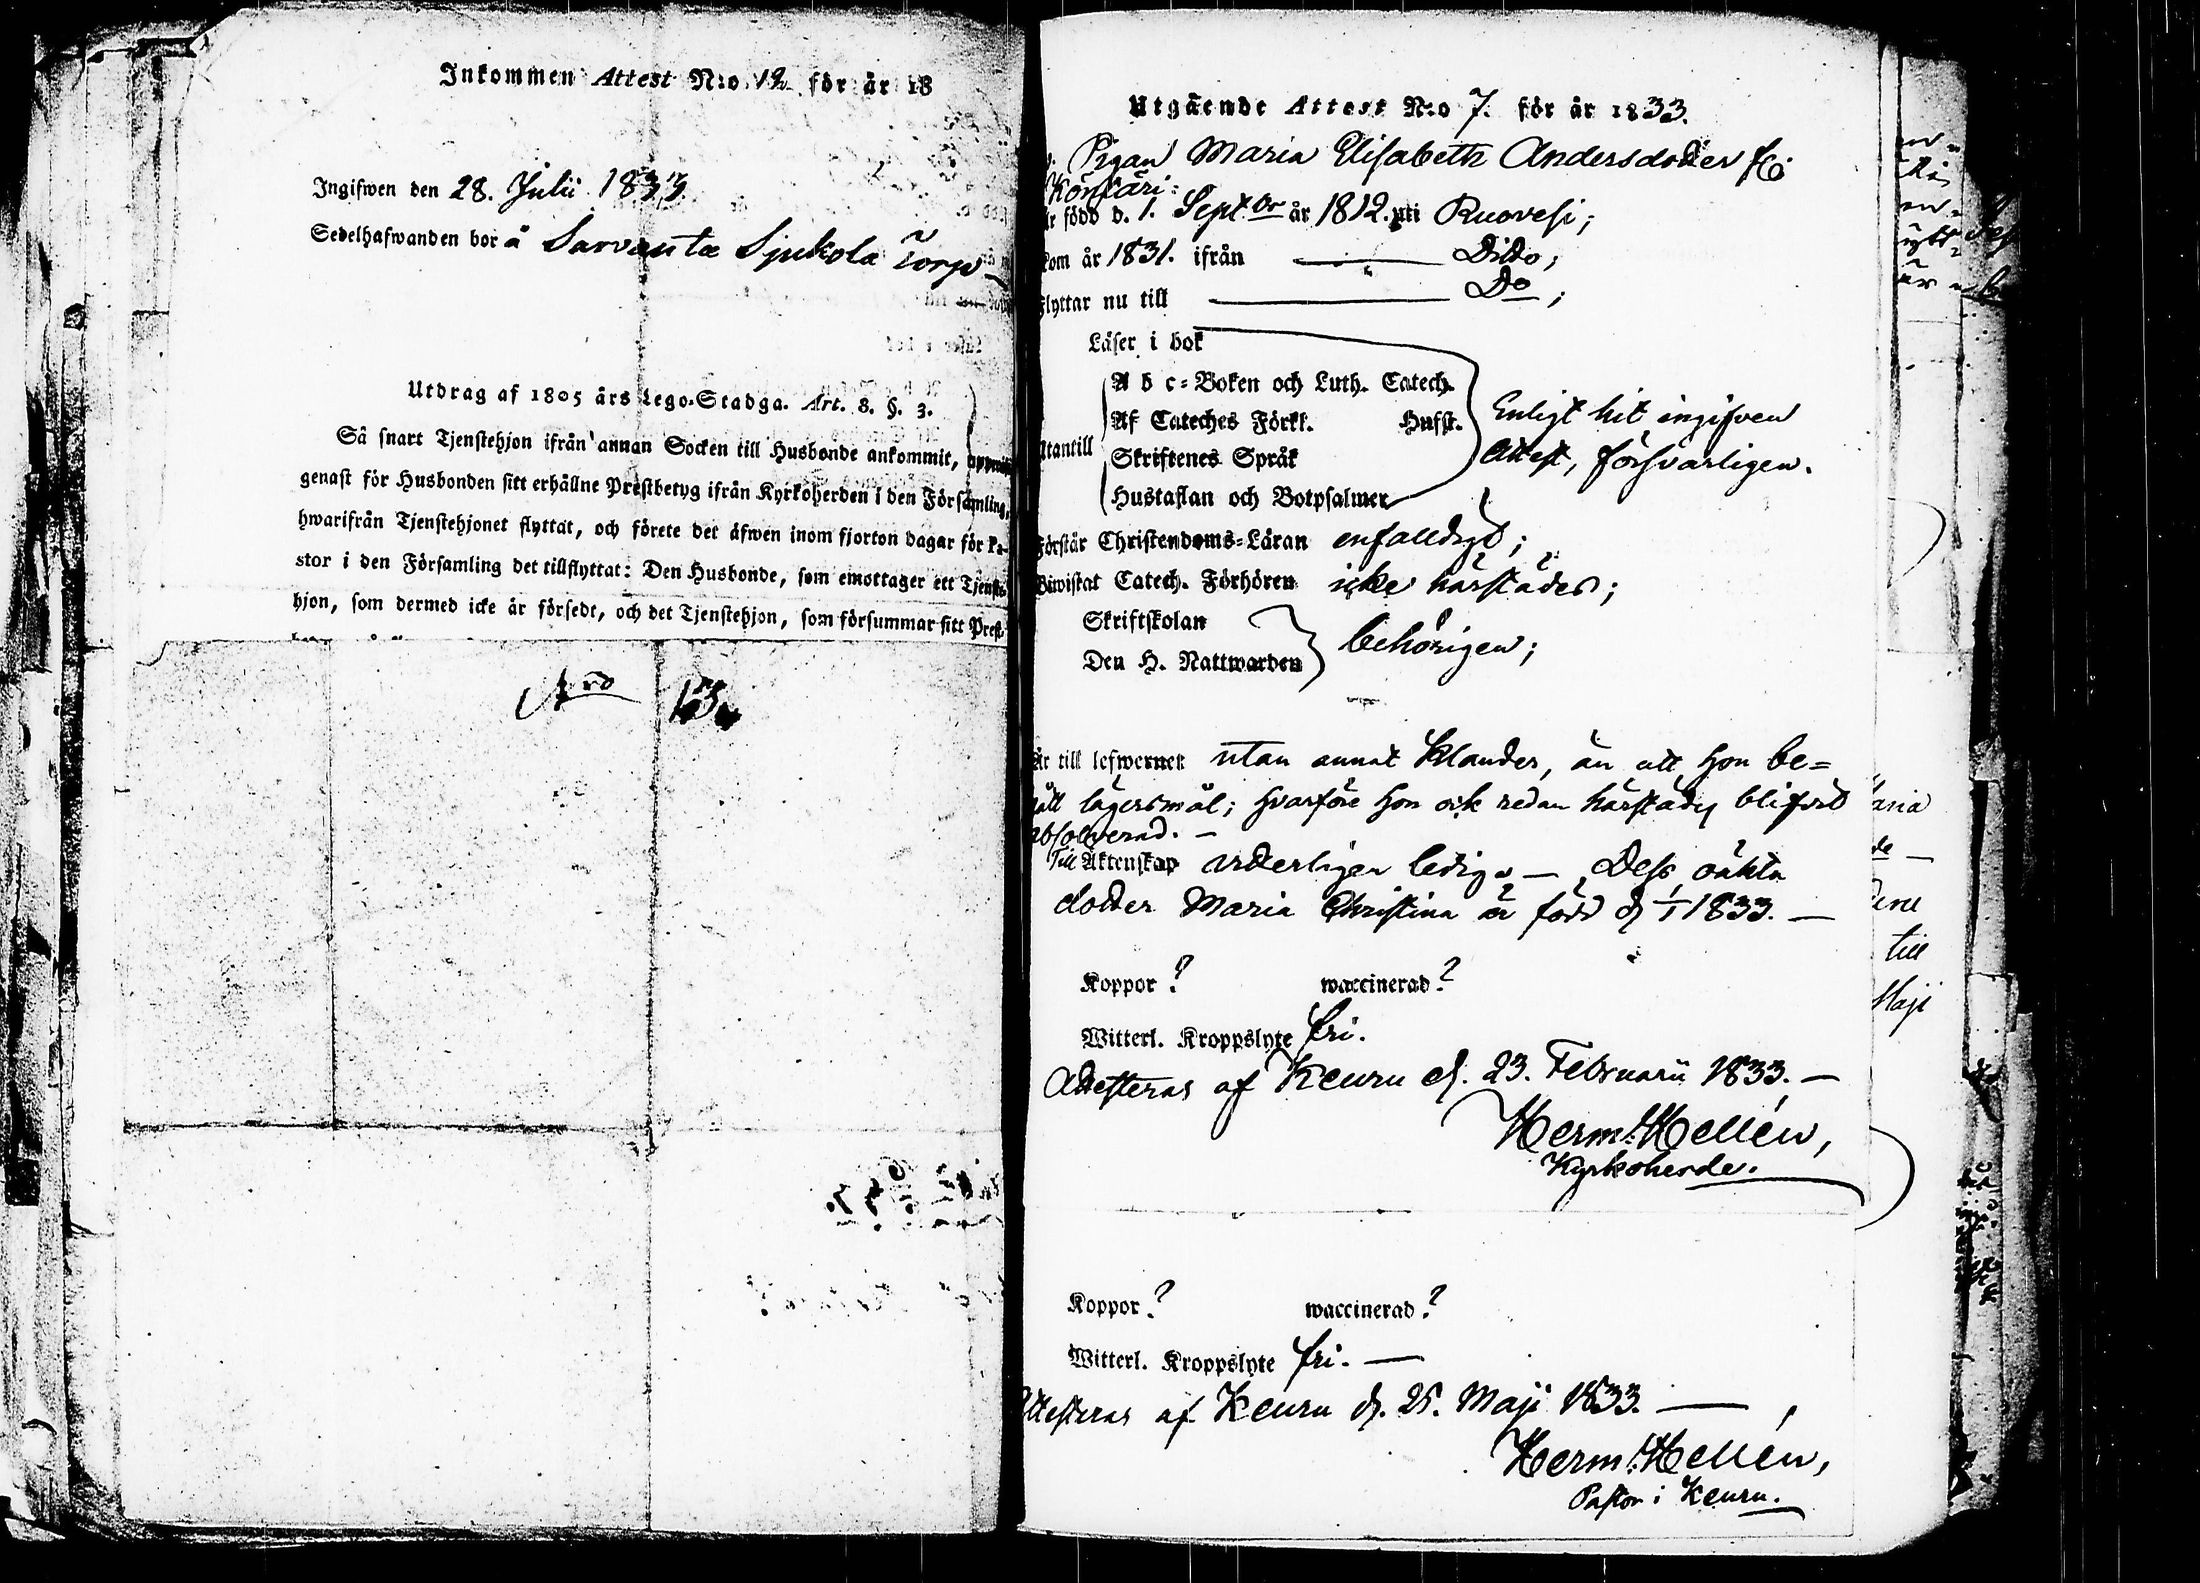 Inkommen Attest N:o 12 för år 18
Ingifwen den 28. Julii 1833
Sedelhafwanden bor å Sarvanta Sjukola Torp
Utdrag af 1805 års Lego-Stadga. Art. 8. §. 3.
Så snart Tjenstehjon ifrån annan Socken till Husbonde ankommit,
genast för Husbonden sitt erhållne Prestbetyg ifrån Kyrkoherden i den Församling,
hwarifrån Tjenstehjonet flyttat, och förete det äfwen inom fjorton dagar för Pa-
stor i den Församling det tillflyttat: Den Husbonde, som emottager ett Tjenste-
hjon, som dermed icke är försedt, och det Tjenstehjon, som försummar sitt Prest-
N:ro 13.
Utgående Attest N:o 7. för år 1833.
Pigan Maria Elisabeth Andersdotter fr.
Könkäri:
är född d. 1. Sept:br år 1812. uti Ruovesi;
kom år 1831. ifrån — Ditto;
flyttar nu till — Do;
Läser i bok
A b c-Boken och Luth. Catech.
Af Cateches Förkl. Husft.
Utantill Skriftenes Språk
Hustaflan och Botpsalmer
Enligt hit ingifven
Attest, försvarligen.
Förstår Christendoms-Läran enfalldigt;
Biwistat Catech. Förhören icke härstädes;
Skriftskolan
Den H. Nattwarden
behörigen;
Är till lefwernet utan annat klander, än att hon be-
gått lägersmål; hvarföre hon ock redan härstädes blifvit
absolverad. —
Till Äktenskap vederligen ledig. — Dess oäkta
dotter Maria Christina är född d. 1/1 1833. —
Koppor? waccinerad?
Witterl. Kroppslyte fri.
Attesteras af Keuru d. 23. Februarii 1833. —
Herm: Hellén,
Kyrkoherde.
Koppor? waccinerad?
Witterl. Kroppslyte fri. —
Attesteras af Keuru d. 25. Maji 1833. —
Herm: Hellén,
Pastor i Keuru.
till
Maji